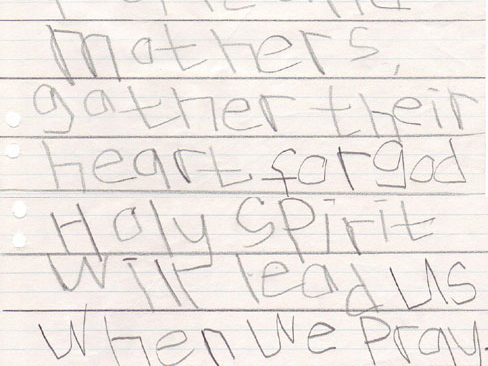 mothers,
gather their
heart. for god
Holy Spirit
Will lead us
When We Pray.